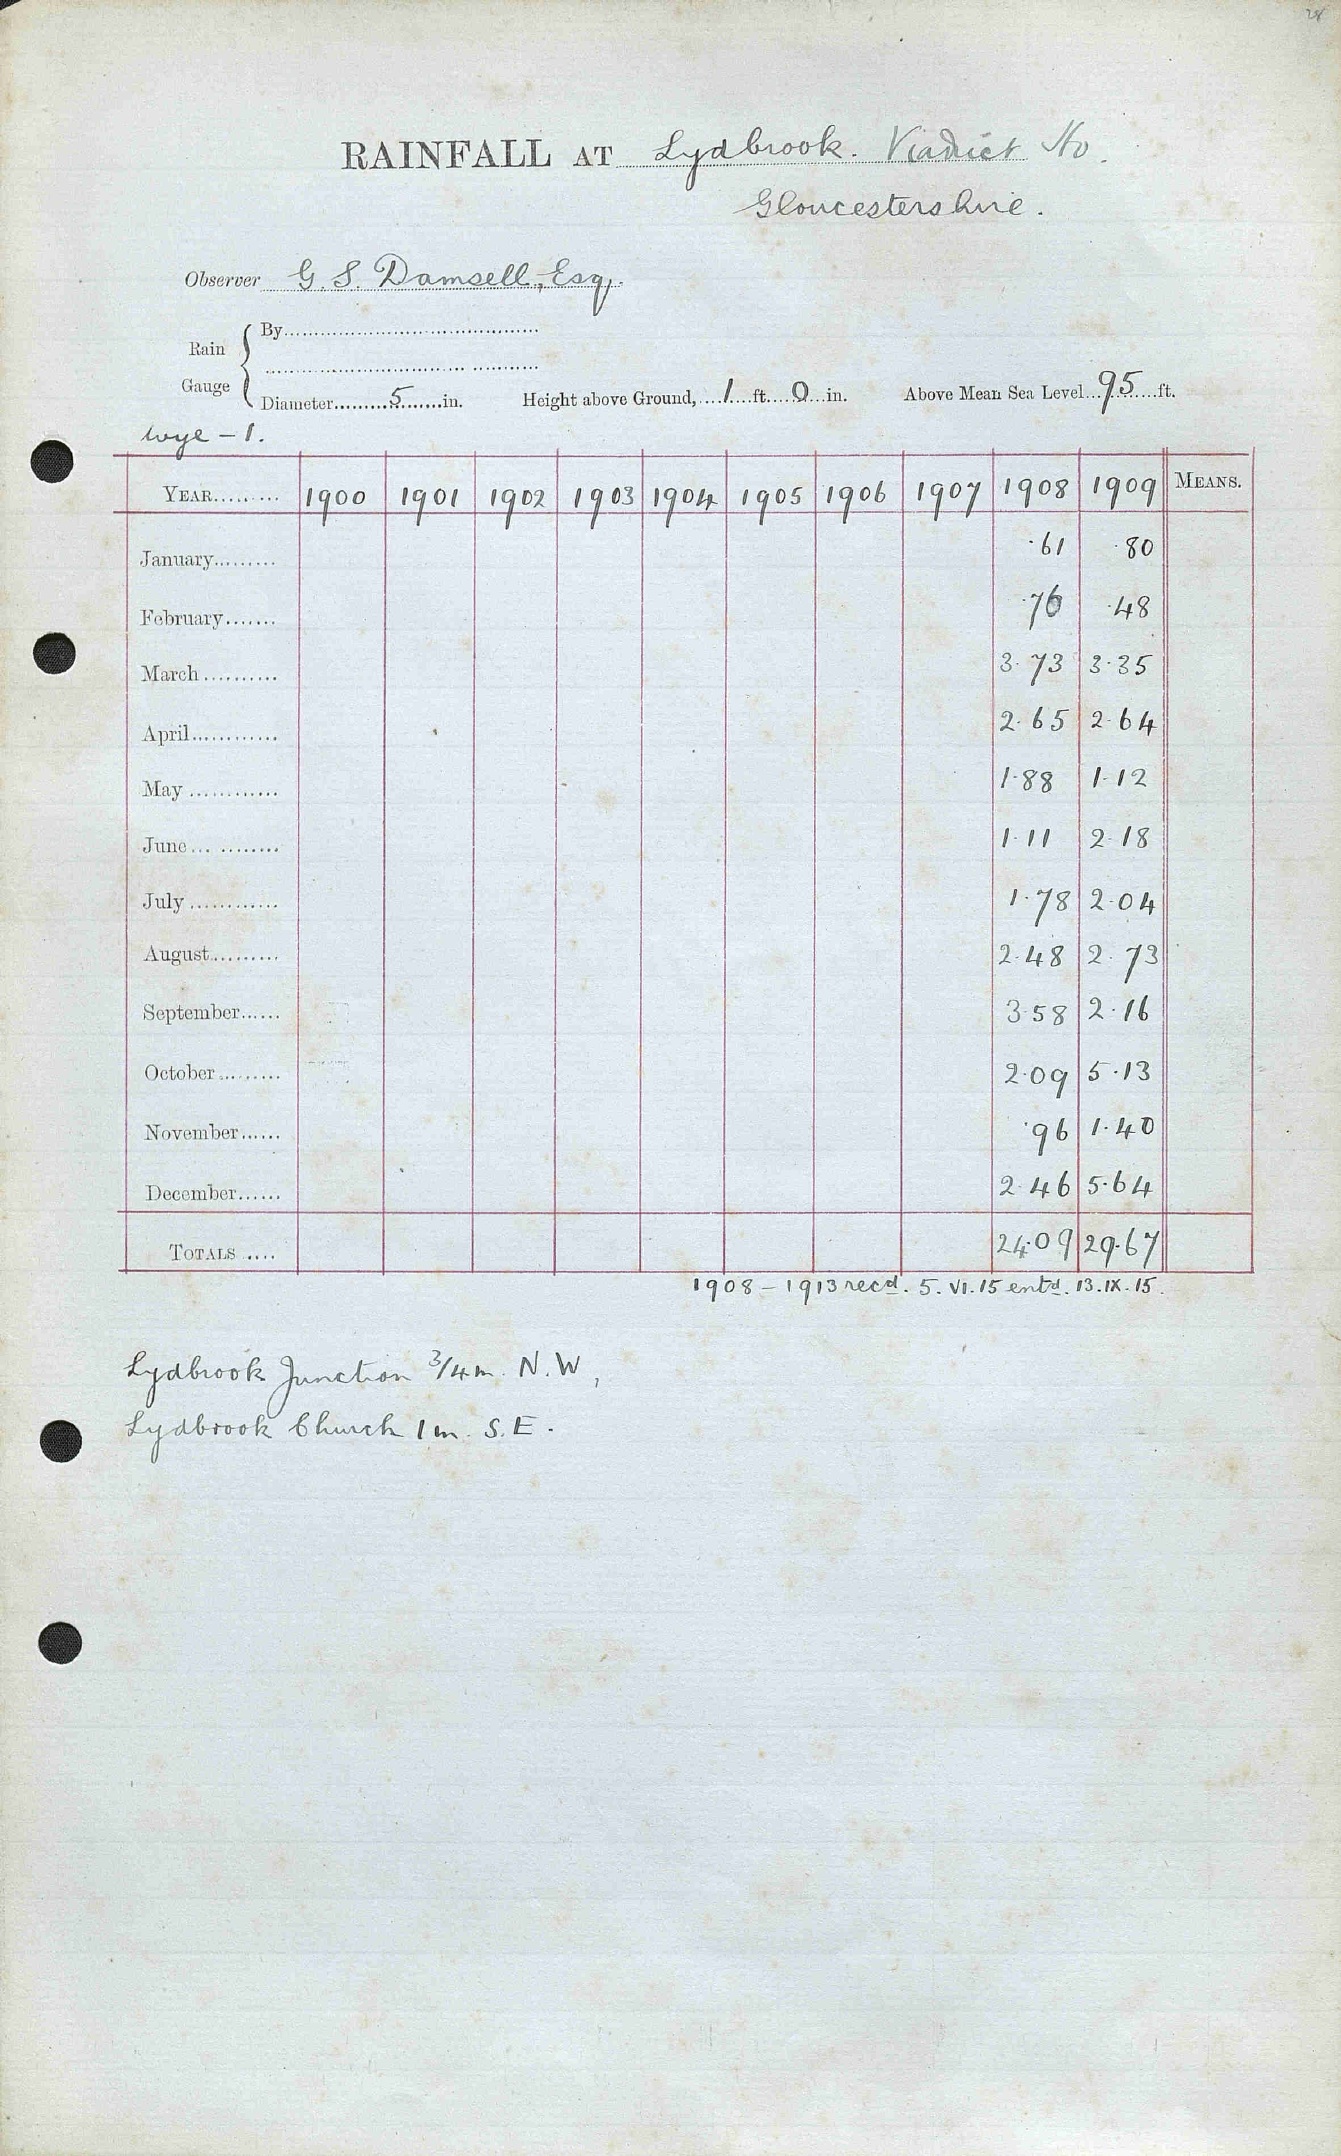 28
RAINFALL AT Lydbrook. Viaduct Ho.
Gloucestershire.
Observer G. S. Damsell, Esq.
Rain Gauge { By
Diameter 5 in. Height above Ground, 1 ft. 0 in. Above Mean Sea Level 95 ft.
Wye - 1.
YEAR 1900 1901 1902 1903 1904 1905 1906 1907 1908 1909 MEANS.
January ·61 ·80
February ·76 ·48
March 3·73 3·35
April 2·65 2·64
May 1·88 1·12
June 1·11 2·18
July 1·78 2·04
August 2·48 2·73
September 3·58 2·16
October 2·09 5·13
November ·96 1·40
December 2·46 5·64
TOTALS 24·09 29·67
1908 - 1913 recd. 5. VI. 15 entd. 13. IX. 15.
Lydbrook Junction 3/4 m. N.W,
Lydbrook Church 1 m. S.E.